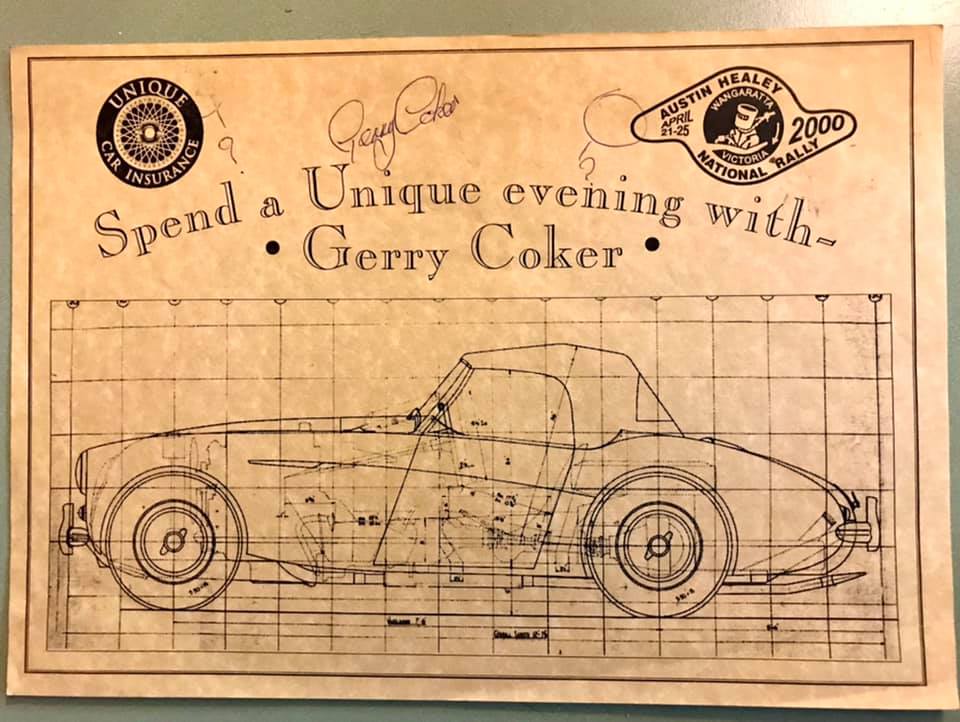 UNIQUE
CAR INSURANCE
Gerry Coker
AUSTIN HEALEY
APRIL
21-25
WANGARATTA
VICTORIA
2000
NATIONAL RALLY
Spend a Unique evening with-
• Gerry Coker •